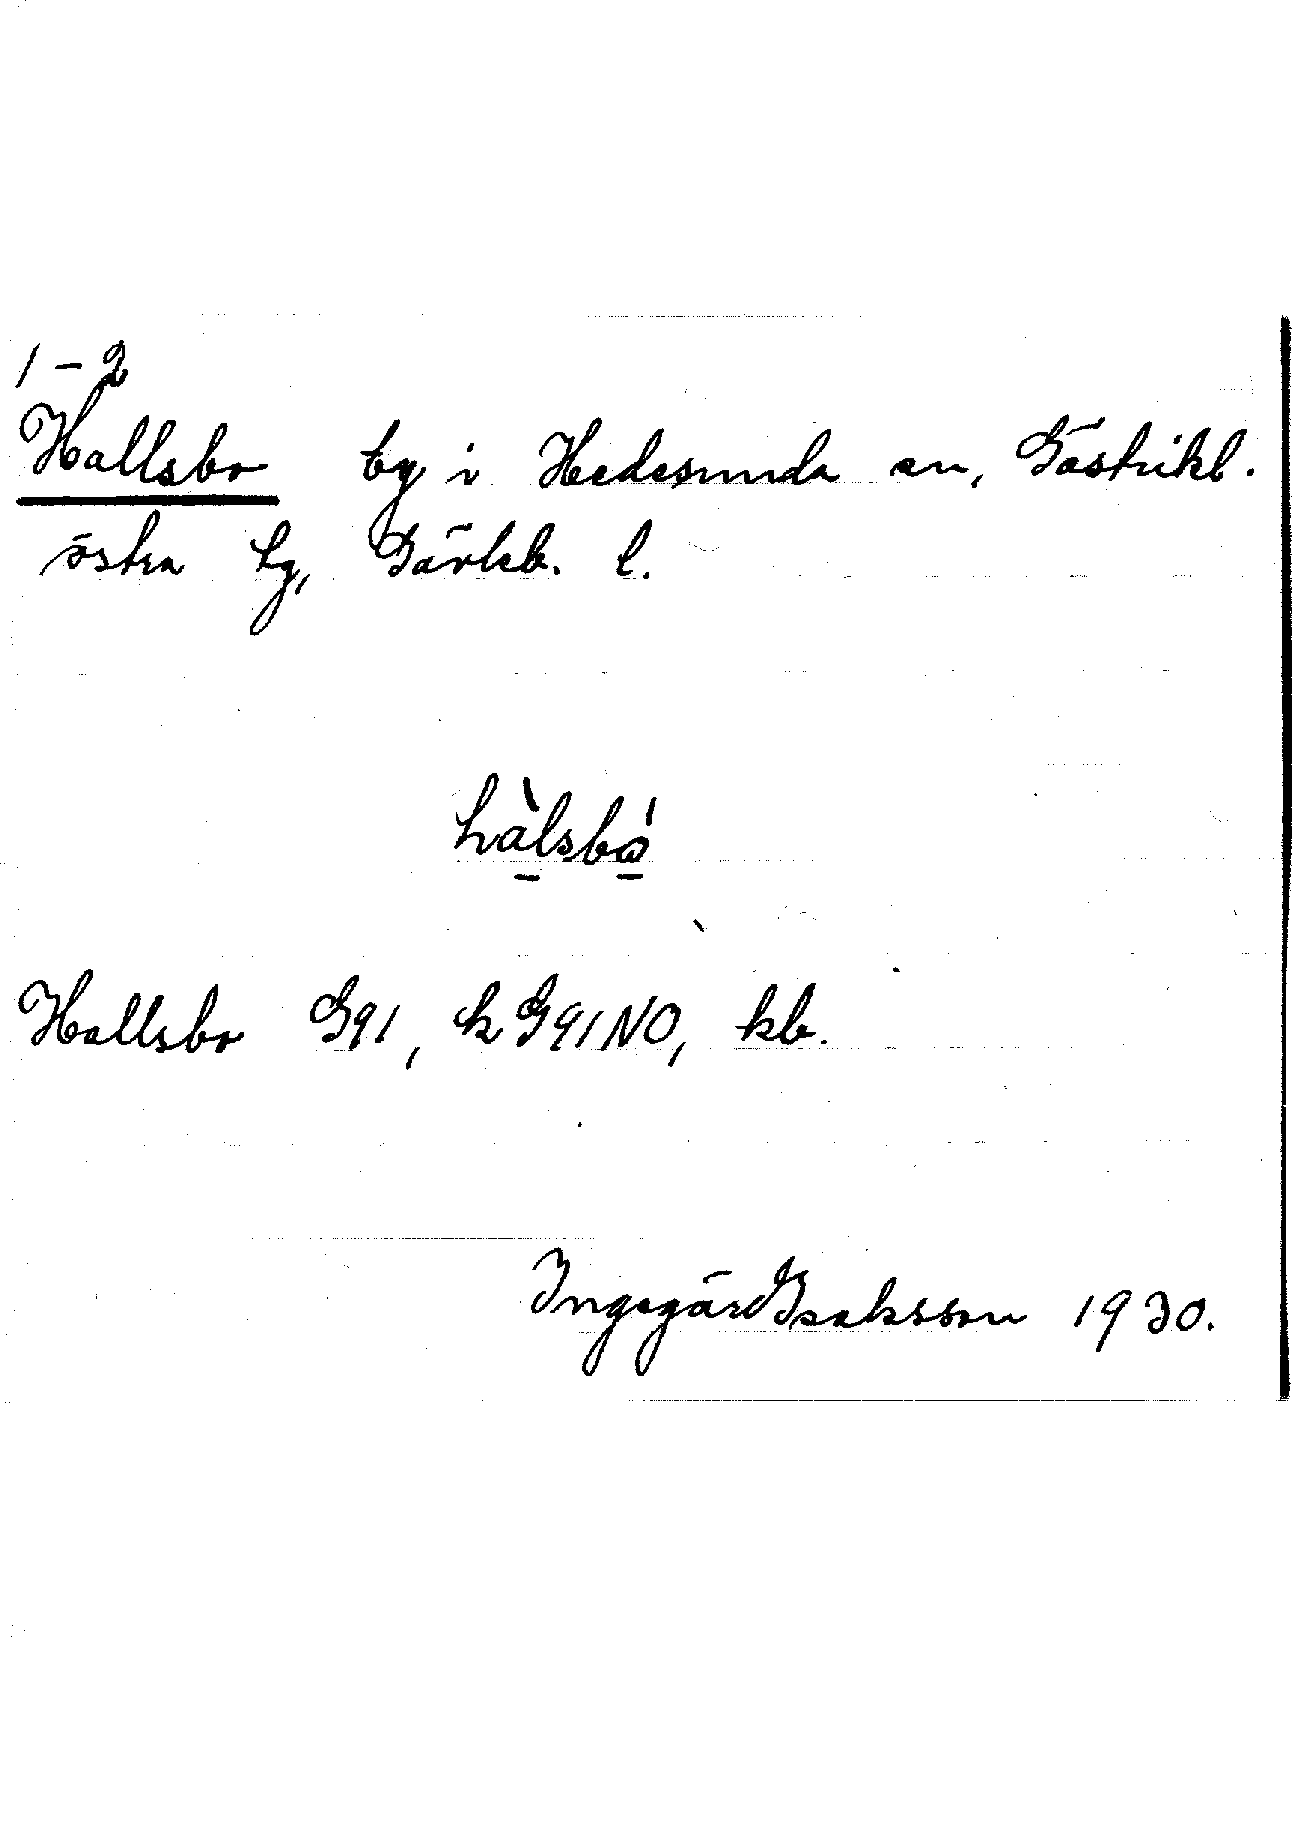 1-2
Hallsbo by i Hedesunda sn, Gästrikl.
östra tg, Gävleb. l.
hàlsbó
Hallsbo G91, k G91NO, kb.
Ingegärd Isaksson 1930.